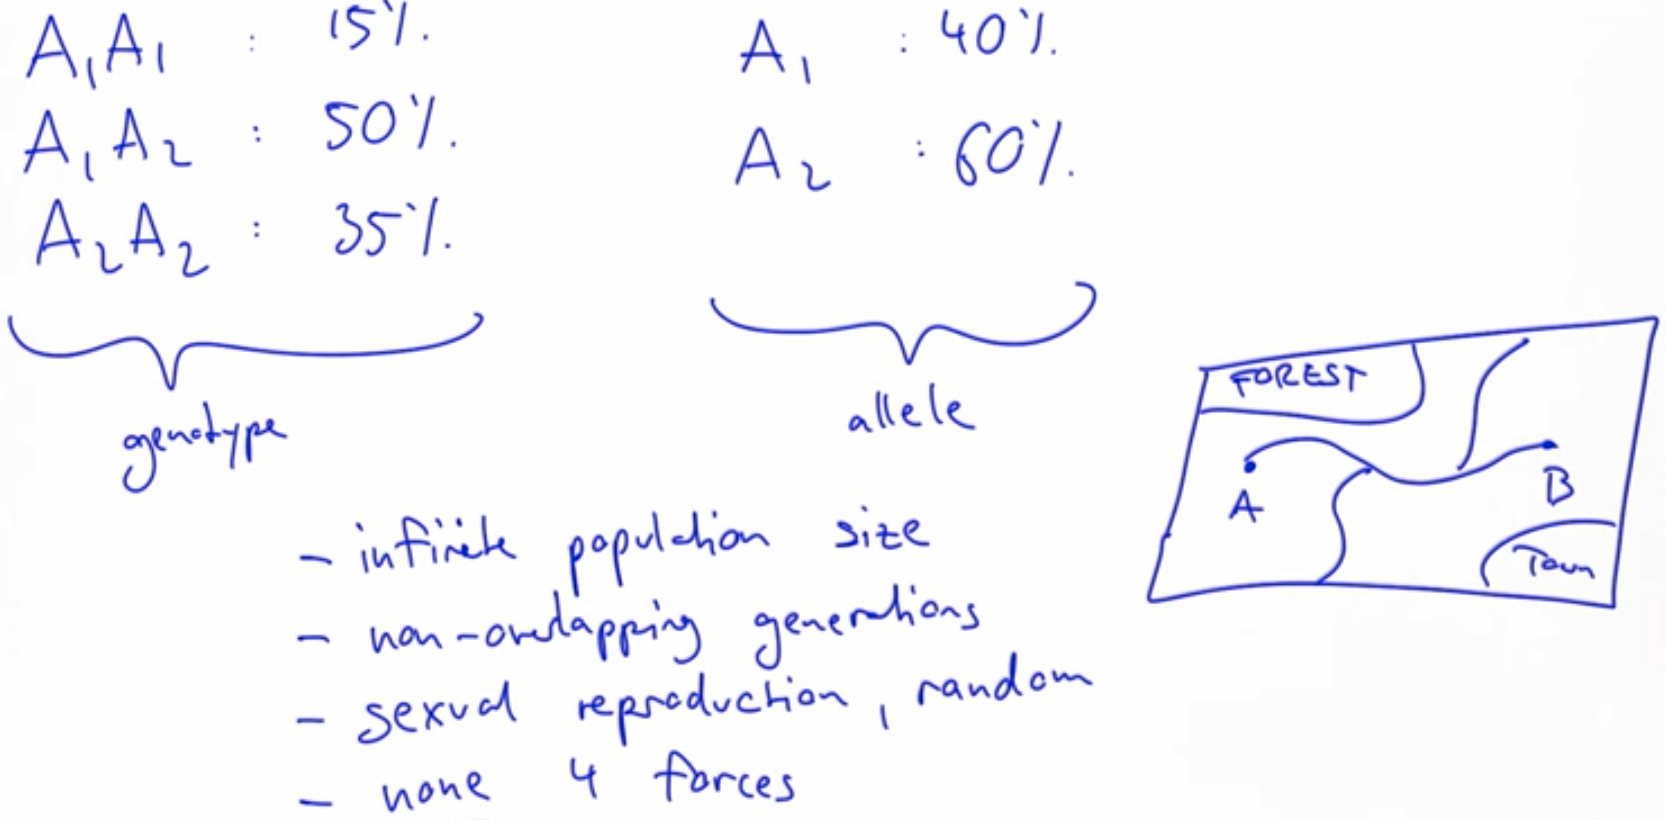 A₁A₁ : 15%.
A₁A₂ : 50%.
A₂A₂ : 35%.
genotype
A₁ : 40%.
A₂ : 60%.
allele
FOREST
A
B
Town
- infinite population size
- non-overlapping generations
- sexual reproduction, random
- none 4 forces